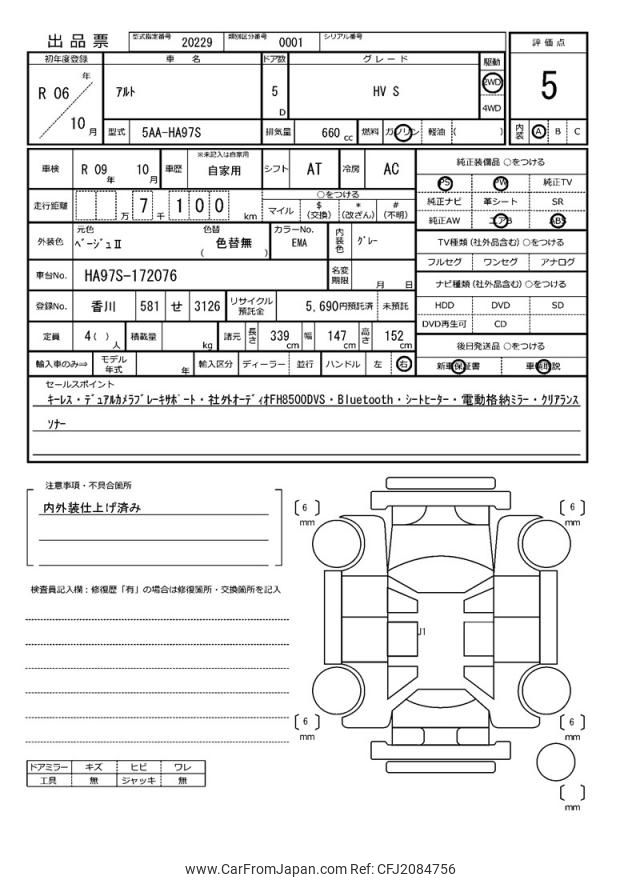 出品票 型式指定番号 20229 類別区分番号 0001 シリアル番号
評価点
5
内装 A B C
初年度登録 車名 ドア数 グレード 駆動
R 06 年 10 月
アルト
5 D
HV S
2WD
4WD
型式 5AA-HA97S 排気量 660 cc 燃料 ガソリン 軽油 ( )
車検 R 09 年 10 月 車歴 ※未記入は自家用 自家用 シフト AT 冷房 AC
走行距離 万 7 千 1 0 0 km
○をつける
マイル $ (交換) * (改ざん) # (不明)
外装色 元色 ベージュⅡ 色替 ( 色替無 ) カラーNo. EMA 内装色 グレー
車台No. HA97S-172076 名変期限 月 日
登録No. 香川 581 せ 3126 リサイクル預託金 5,690円預託済 未預託
定員 4( ) 人 積載量 kg 諸元 長さ 339 cm 幅 147 cm 高さ 152 cm
輸入車のみ⇒ モデル年式 年 輸入区分 ディーラー 並行 ハンドル 左 右
純正装備品 ○をつける
PS PW 純正TV
純正ナビ 革シート SR
純正AW エアB ABS
TV種類(社外品含む)○をつける
フルセグ ワンセグ アナログ
ナビ種類(社外品含む)○をつける
HDD DVD SD
DVD再生可 CD
後日発送品 ○をつける
新車保証書 車輌取説
セールスポイント
キーレス・デュアルカメラブレーキサポート・社外オーディオFH8500DVS・Bluetooth・シートヒーター・電動格納ミラー・クリアランス
ソナー
注意事項・不具合箇所
内外装仕上げ済み
検査員記入欄:修復歴「有」の場合は修復箇所・交換箇所を記入
〔 6 〕 mm
〔 6 〕 mm
J1
〔 6 〕 mm
〔 6 〕 mm
〔 〕 mm
ドアミラー キズ ヒビ ワレ
工具 無 ジャッキ 無
www.CarFromJapan.com Ref: CFJ2084756